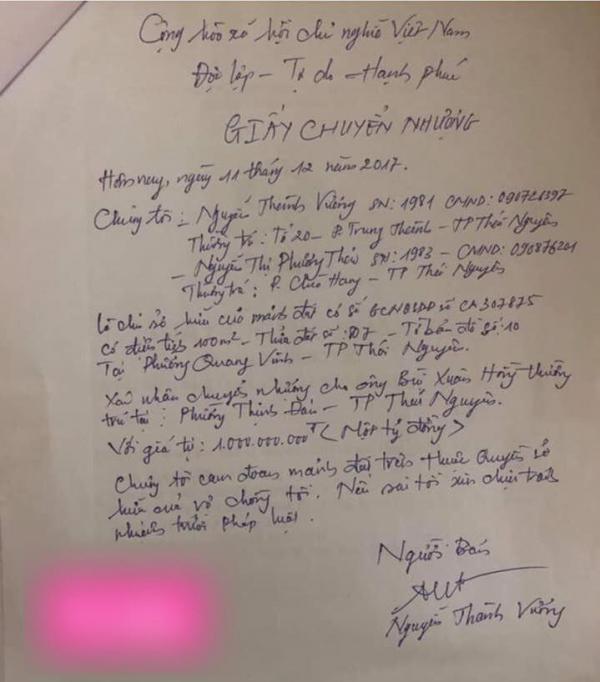 Cộng hòa xã hội chủ nghĩa Việt Nam
Độc lập - Tự do - Hạnh phúc
GIẤY CHUYỂN NHƯỢNG
Hôm nay, ngày 11 tháng 12 năm 2017.
Chúng tôi: - Nguyễn Thành Vương SN: 1981 CMND:
Thường trú: Tổ 20 - P. Trung Thành - TP Thái Nguyên
- Nguyễn Thị Phương Thảo SN: 1983 - CMND: 090876201
Thường trú: P. Chùa Hang - TP Thái Nguyên
Là chủ sở hữu của mảnh đất có số GCNQSDĐ số CA307875
có diện tích 100m² - Thửa đất số: 807 - Tờ bản đồ số: 10
Tại Phường Quang Vinh - TP Thái Nguyên.
Xác nhận chuyển nhượng cho ông Bùi Xuân Hồng thường
trú tại: Phường Thịnh Đán - TP Thái Nguyên.
Với giá trị: 1.000.000.000đ < Một tỷ đồng >
Chúng tôi cam đoan mảnh đất trên thuộc quyền sở
hữu của vợ chồng tôi. Nếu sai tôi xin chịu trách
nhiệm trước pháp luật.
Người Bán
Nguyễn Thành Vương